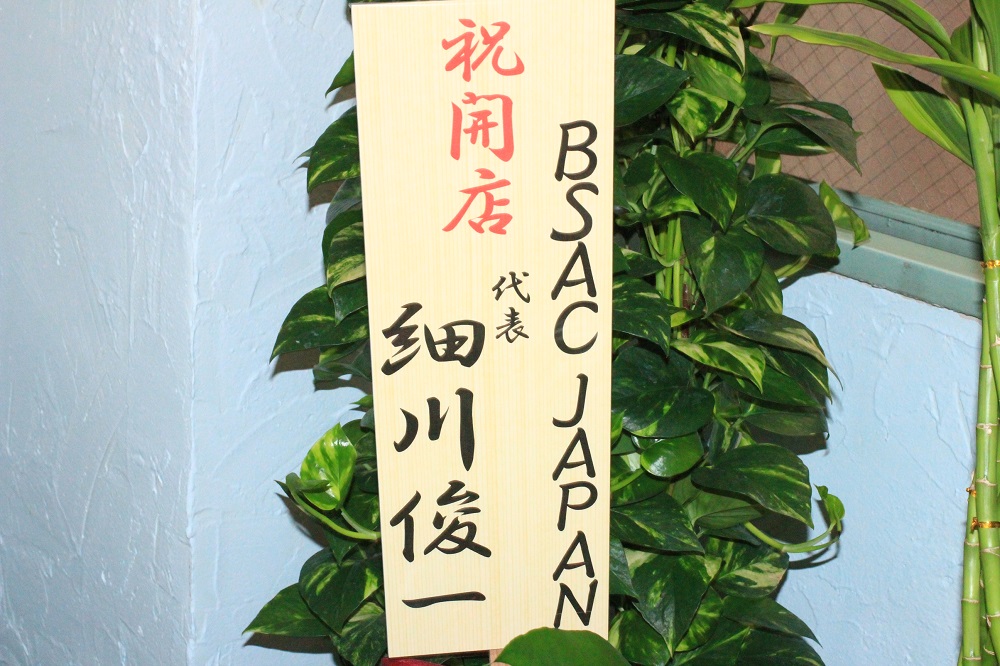 祝開店
BSAC JAPAN
代表
細川俊一